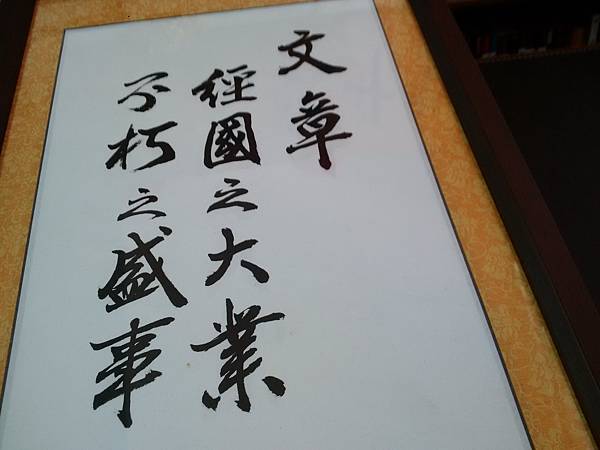 文章
經國之大業
不朽之盛事